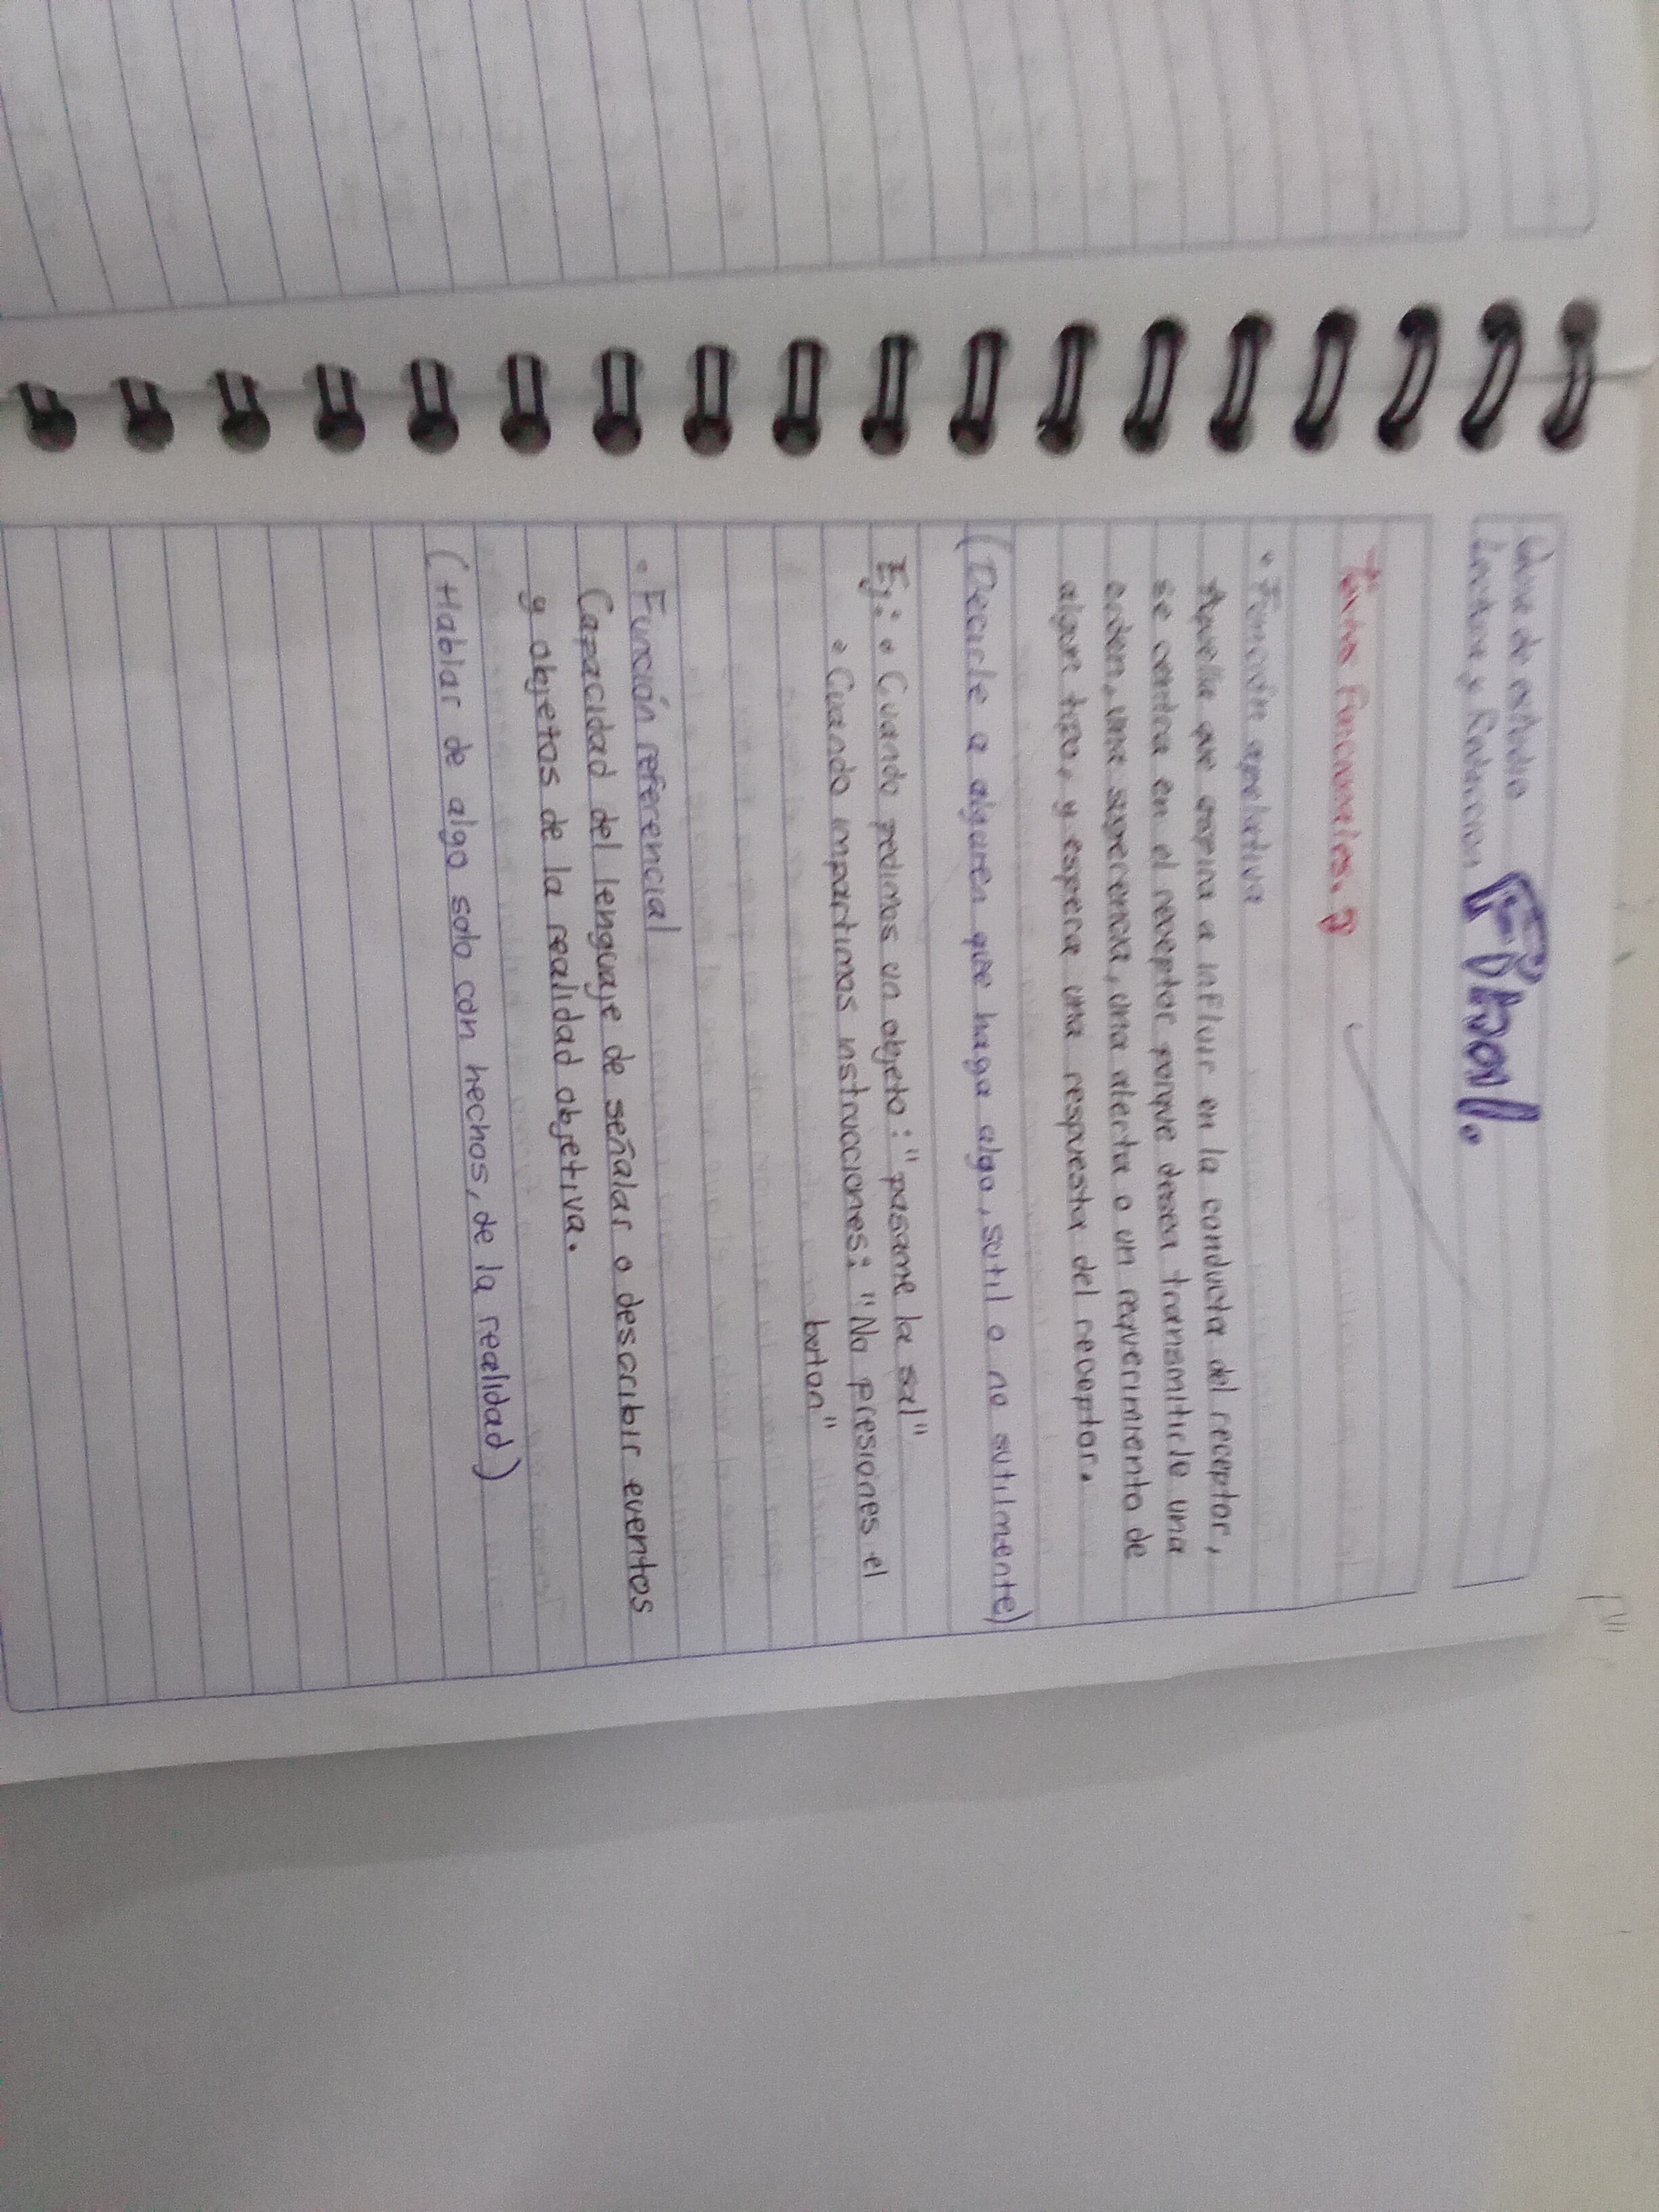 Guia de estudio
Lectura y Redaccion
Textos Funcionales.
• Función apelativa
Aquella que aspira a influir en la conducta del receptor,
se centra en el receptor porque desea transmitirle una
orden, una sugerencia, una alerta o un requerimiento de
algún tipo, y espera una respuesta del receptor.
(Decirle a alguien que haga algo, sutil o no sutilmente)
Ej: • Cuando pedimos un objeto: "pasame la sal"
• Cuando impartimos instrucciones: "No presiones el
boton"
• Función referencial
Capacidad del lenguaje de señalar o describir eventos
y objetos de la realidad objetiva.
(Hablar de algo solo con hechos, de la realidad)